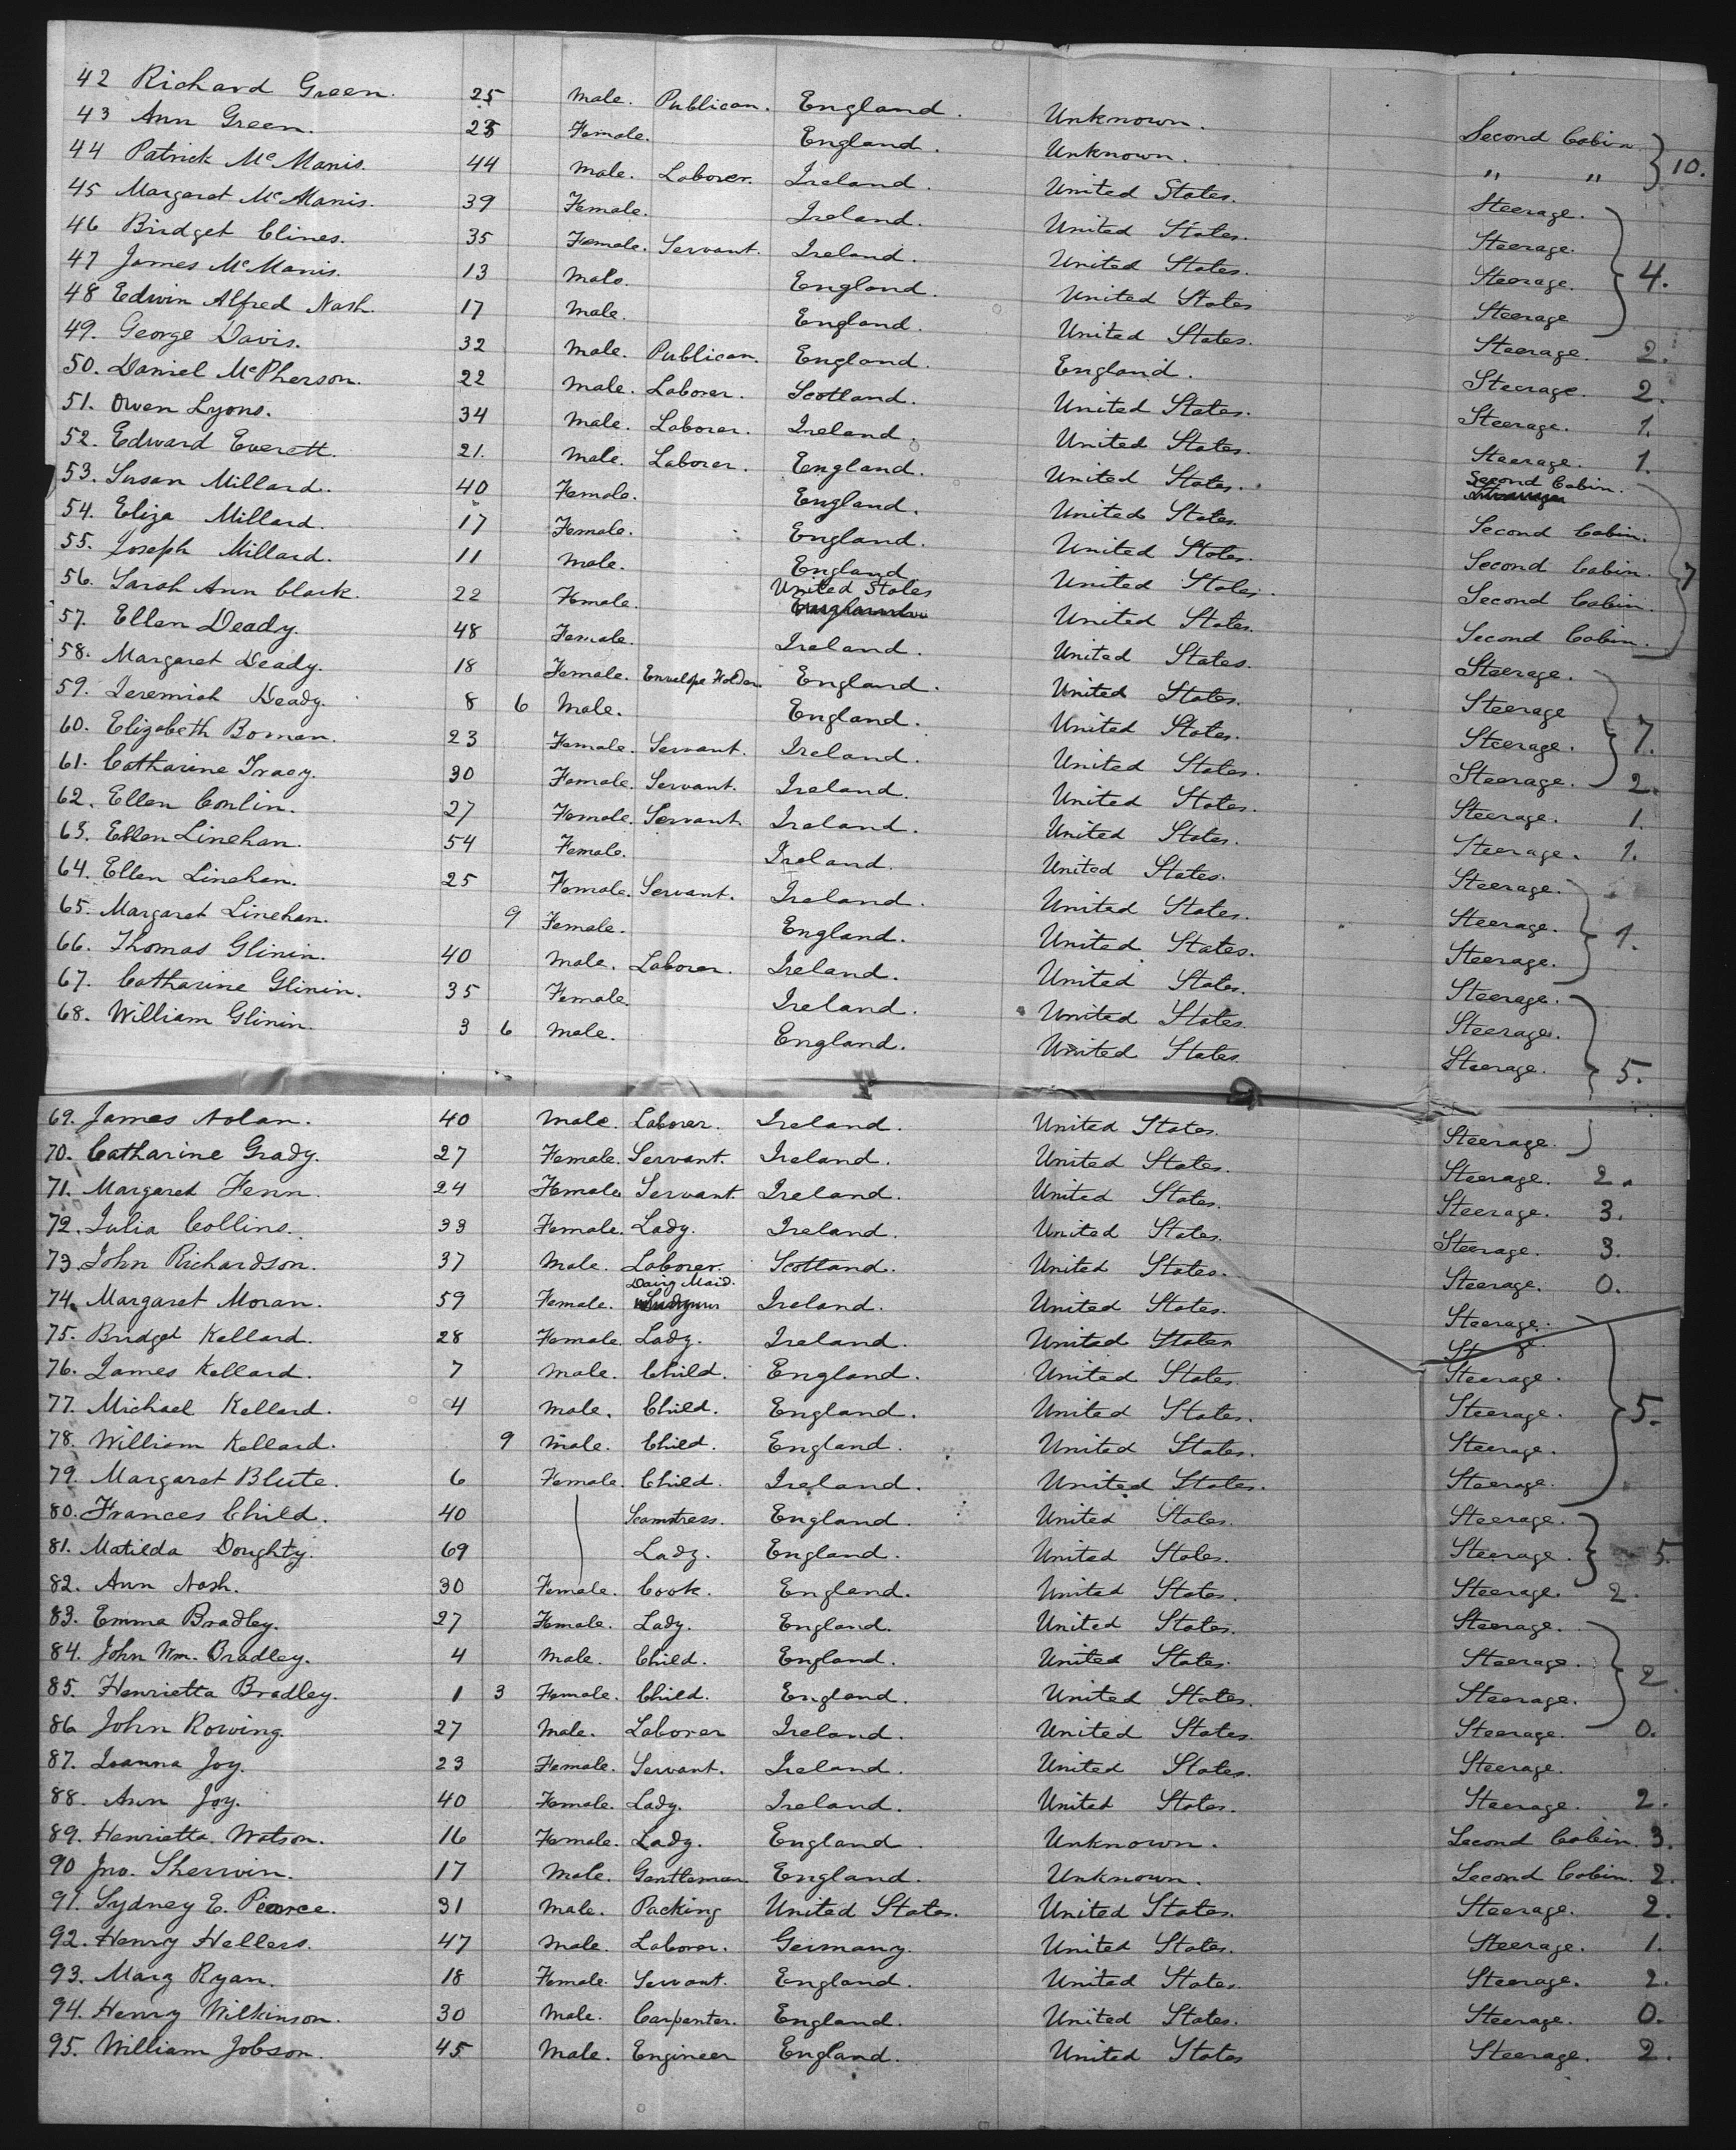 42 Richard Green. 25 Male. Publican. England. Unknown. Second Cabin. } 10.
43 Ann Green. 25 Female. England. Unknown. " "
44 Patrick McManis. 44 Male. Laborer. Ireland. United States. Steerage.
45 Margaret McManis. 39 Female. Ireland. United States. Steerage.
46 Bridget Clines. 35 Female. Servant. Ireland. United States. Steerage. } 4.
47 James McManis. 13 Male. England. United States. Steerage
48 Edwin Alfred Nash. 17 Male. England. United States. Steerage. 2.
49. George Davis. 32 Male. Publican. England. England. Steerage. 2.
50. Daniel McPherson. 22 Male. Laborer. Scotland. United States. Steerage. 1.
51. Owen Lyons. 34 Male. Laborer. Ireland. United States. Steerage. 1.
52. Edward Everett. 21. Male. Laborer. England. United States. Second Cabin.
53. Susan Millard. 40 Female. England. United States. Second Cabin.
54. Eliza Millard. 17 Female. England. United States. Second Cabin. } 7
55. Joseph Millard. 11 Male. England United States. Second Cabin.
56. Sarah Ann Clark. 22 Female. United States United States. Second Cabin.
57. Ellen Deady. 48 Female. Ireland. United States. Steerage.
58. Margaret Deady. 18 Female. Envelope Folder. England. United States. Steerage
59. Jeremiah Deady. 8 6 Male. England. United States. Steerage. } 7.
60. Elizabeth Boman. 23 Female. Servant. Ireland. United States. Steerage. 2.
61. Catharine Tracy. 30 Female. Servant. Ireland. United States. Steerage. 1.
62. Ellen Conlin. 27 Female. Servant. Ireland. United States. Steerage. 1.
63. Ellen Linehan. 54 Female. Ireland. United States. Steerage.
64. Ellen Linehan. 25 Female. Servant. Ireland. United States. Steerage. } 1.
65. Margaret Linehan. 9 Female. England. United States. Steerage.
66. Thomas Glinin. 40 Male. Laborer. Ireland. United States. Steerage.
67. Catharine Glinin. 35 Female. Ireland. United States. Steerage.
68. William Glinin. 3 6 Male. England. United States. Steerage. } 5.
69. James Nolan. 40 Male. Laborer. Ireland. United States. Steerage.
70. Catharine Grady. 27 Female. Servant. Ireland. United States. Steerage. 2.
71. Margaret Fenn. 24 Female Servant. Ireland. United States. Steerage. 3.
72. Julia Collins. 33 Female. Lady. Ireland. United States. Steerage. 3.
73. John Richardson. 37 Male. Laborer. Scotland. United States. Steerage. 0.
74. Margaret Moran. 59 Female. Dairy Maid. Ireland. United States. Steerage.
75. Bridget Kellard. 28 Female. Lady. Ireland. United States Steerage.
76. James Kellard. 7 Male. Child. England. United States. Steerage.
77. Michael Kellard. 4 Male. Child. England. United States. Steerage. } 5.
78. William Kellard. 9 Male. Child. England. United States. Steerage.
79. Margaret Blute. 6 Female. Child. Ireland. United States. Steerage.
80. Frances Child. 40 Seamstress. England. United States. Steerage.
81. Matilda Doughty. 69 Lady. England. United States. Steerage. } 5.
82. Ann Nash. 30 Female. Cook. England. United States. Steerage. 2.
83. Emma Bradley. 27 Female. Lady. England. United States. Steerage.
84. John Wm. Bradley. 4 Male. Child. England. United States. Steerage. } 2
85. Henrietta Bradley. 1 3 Female. Child. England. United States. Steerage.
86. John Rowing. 27 Male. Laborer Ireland. United States. Steerage. 0.
87. Joanna Joy. 23 Female. Servant. Ireland. United States. Steerage.
88. Ann Joy. 40 Female. Lady. Ireland. United States. Steerage. 2.
89. Henrietta Watson. 16 Female. Lady. England. Unknown. Second Cabin. 3.
90 Jno. Sherwin. 17 Male. Gentleman. England. Unknown. Second Cabin. 2.
91. Sydney E. Pearce. 31 Male. Packing United States. United States. Steerage. 2.
92. Henry Hellers. 47 Male. Laborer. Germany. United States. Steerage. 1.
93. Mary Ryan. 18 Female. Servant. England. United States. Steerage. 2.
94. Henry Wilkinson. 30 Male. Carpenter. England. United States. Steerage. 0.
95. William Jobson. 45 Male. Engineer England. United States Steerage. 2.